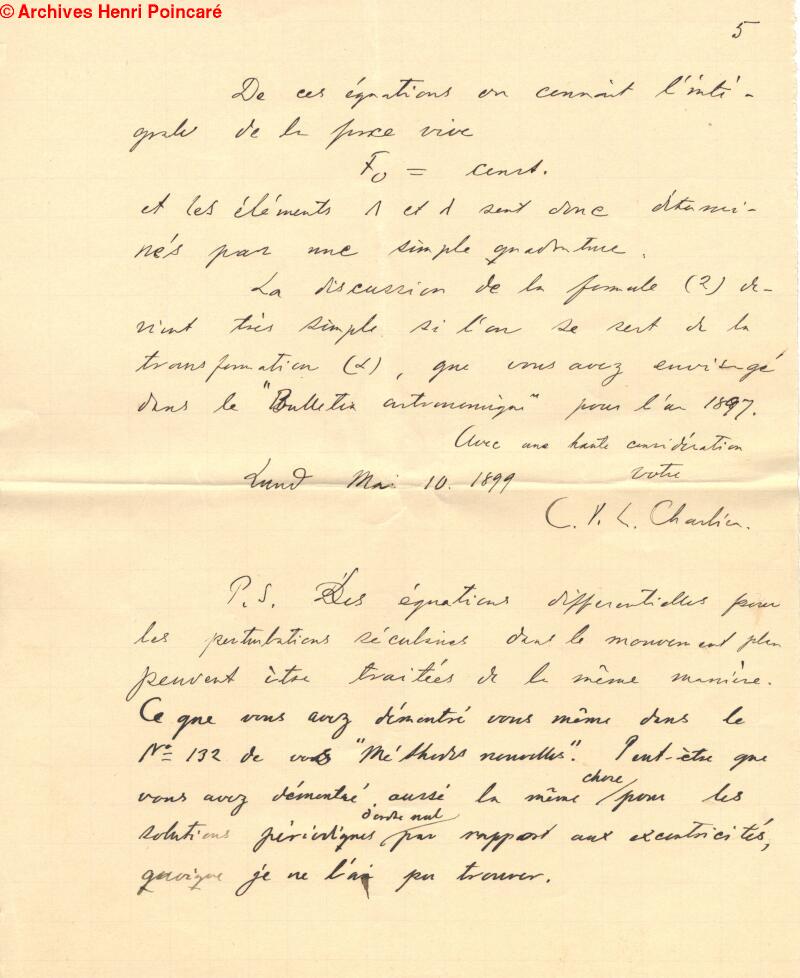 © Archives Henri Poincaré
5
De ces équations on connait l'inté-
grale de la force vive
F₀ = const.
et les éléments Λ et λ sont donc détermi-
nés par une simple quadrature.
La discussion de la formule (2) de-
vient très simple si l'on se sert de la
transformation (α), que vous avez envisagé
dans le "Bulletin astronomique" pour l'an 1897.
Avec une haute considération
votre
Lund Mai 10. 1899
C. V. L. Charlier.
P.S. Les équations differentielles pour
les perturbations séculaires dans le mouvement plan
peuvent être traitées de la même manière.
Ce que vous avez démontré vous même dans le
Nº 132 de vos "Méthodes nouvelles". Peut-être que
vous avez démontré aussi la même chose pour les
solutions périodiques d'ordre nul par rapport aux excentricités,
quoique je ne l'ai pu trouver.